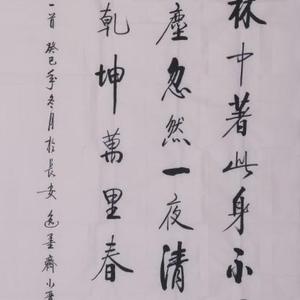 林中著此身不
塵忽然一夜清
乾坤萬里春
一首癸巳年冬月於長安逸墨齋小